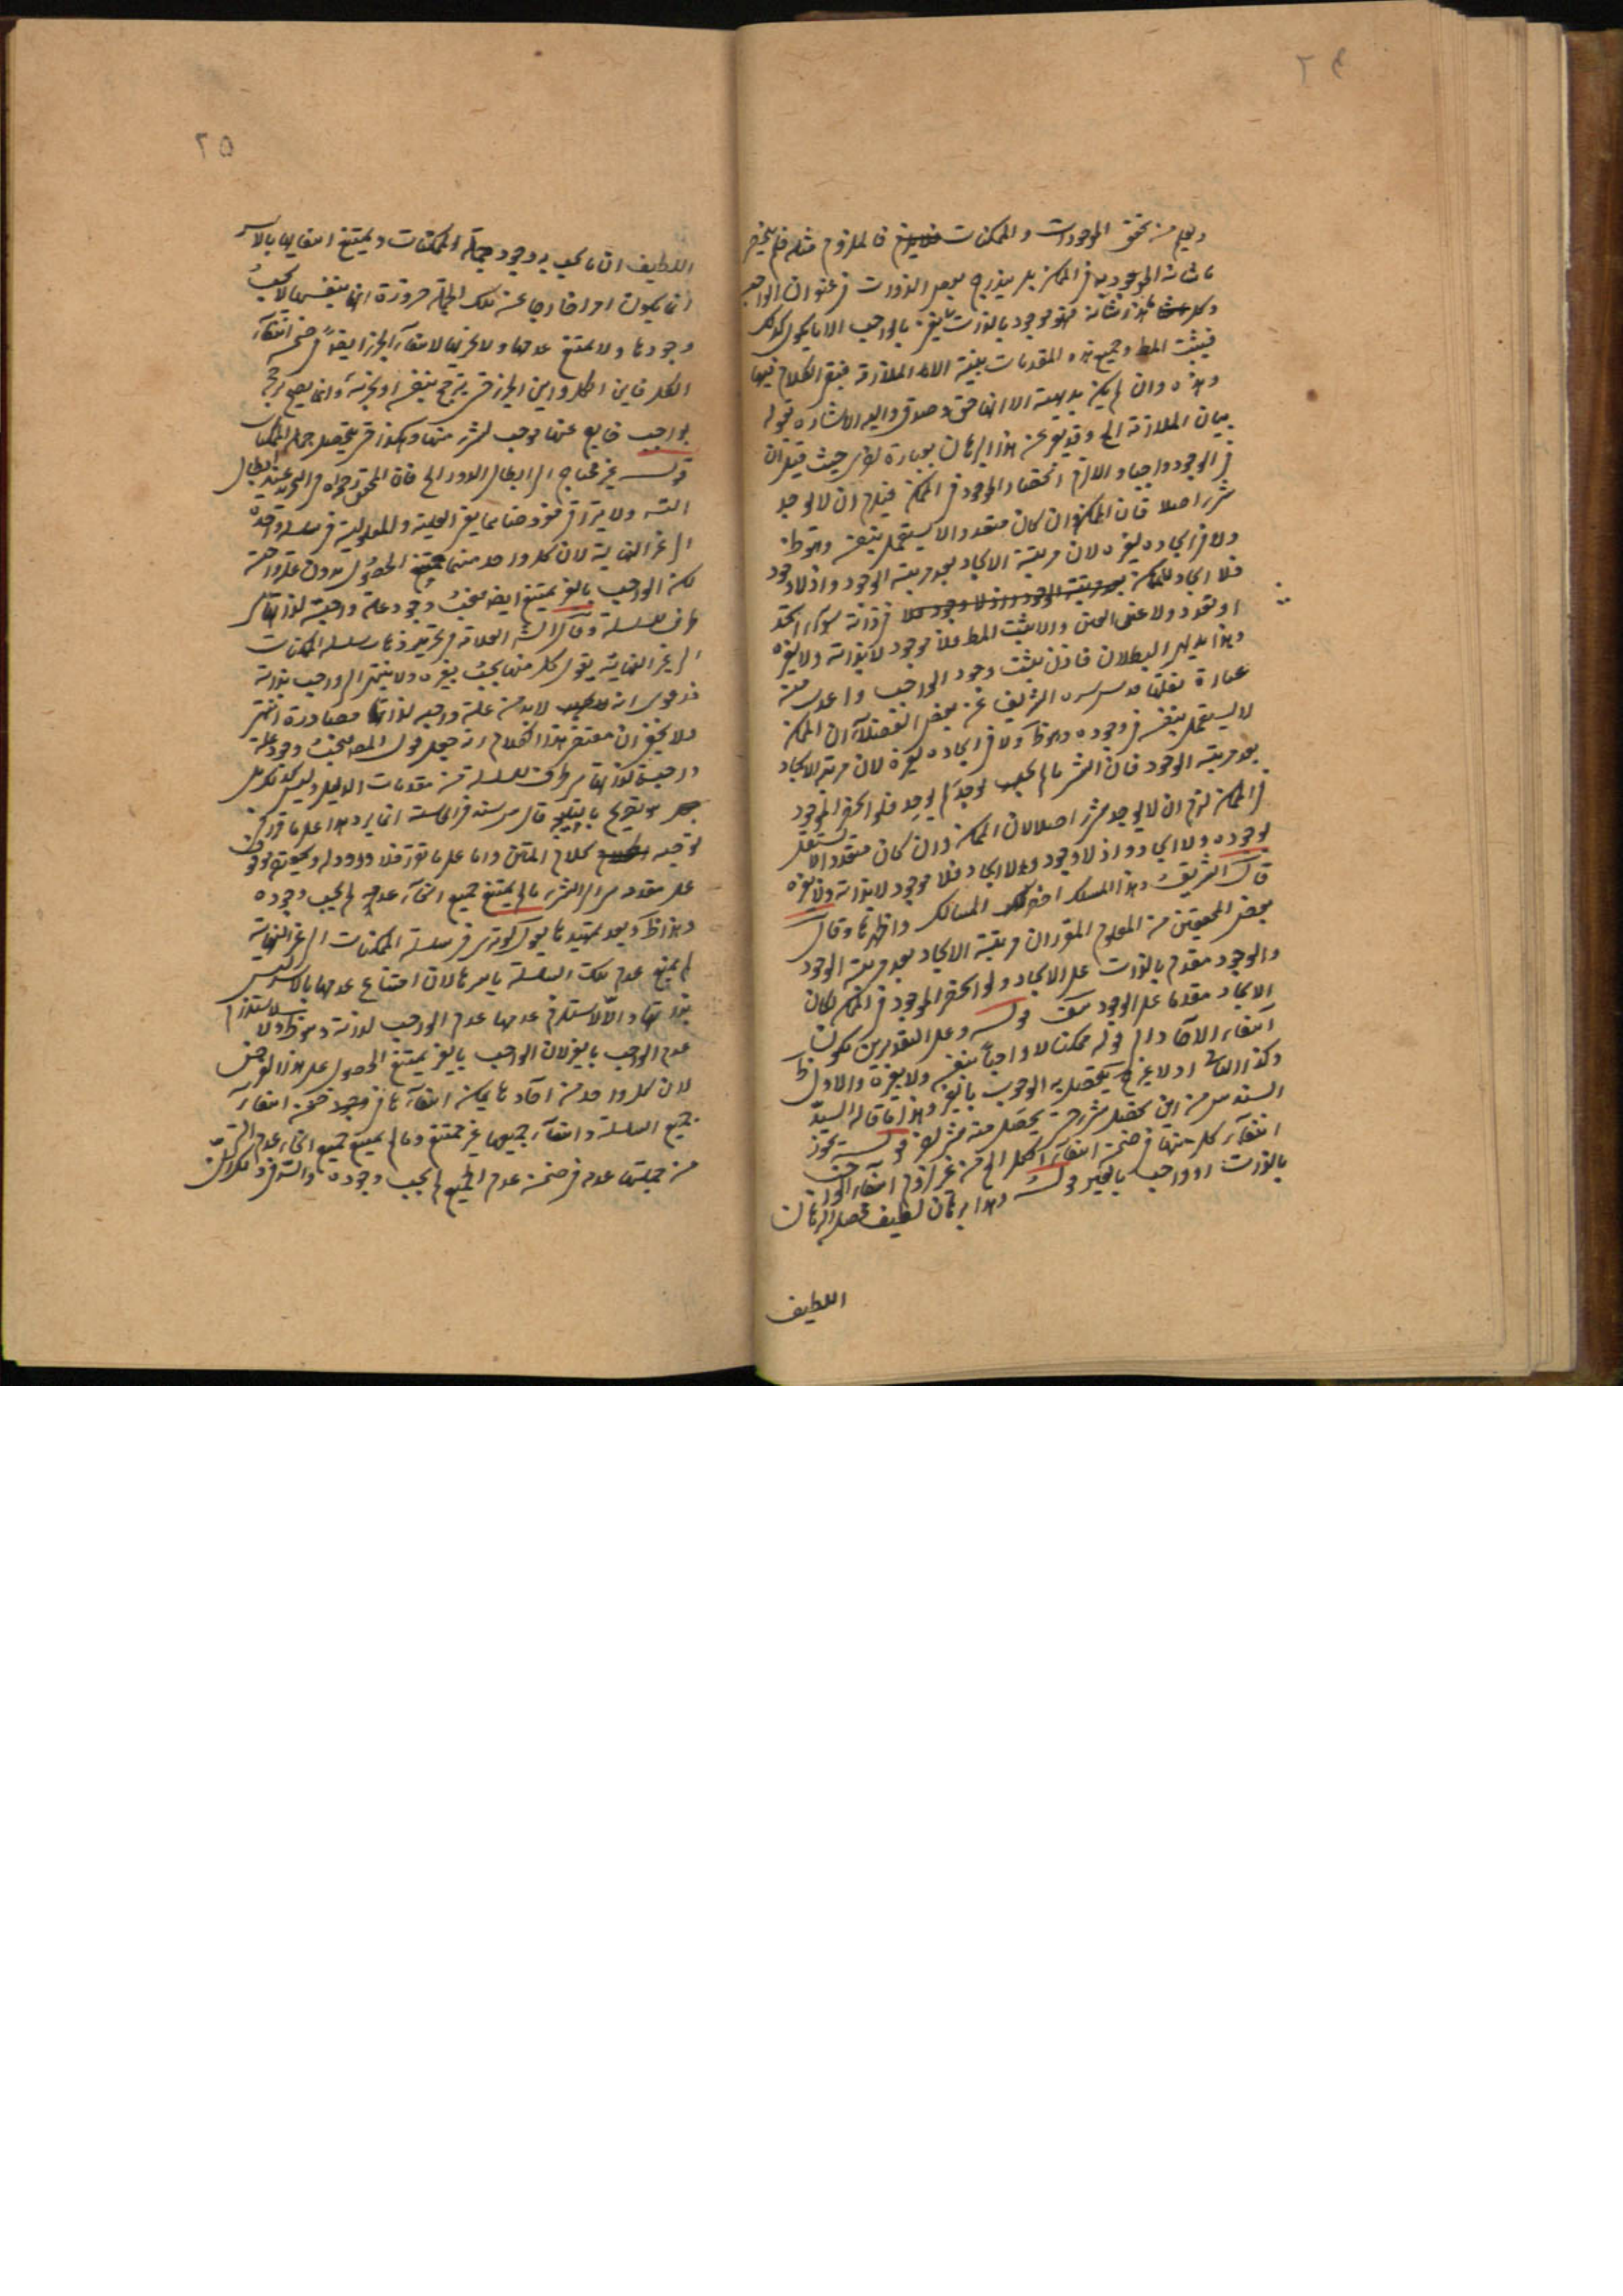 ويعلم من تحقق الموجودات والممكنات فالملزوم مثله فلم ينحصر
الموجود في الممكن بل يندرج بعض الذوات في عنوان الواجب
وكل هذا شانه فهو موجود بالذات بالواجب الا ما يكون كذلك
فيثبت المط وجميع هذه المقدمات بينة الا الملازمة فبقي الكلام فيها
وهذه وان لم يكن بديهية الا انها حق وصدق واليه الاشارة بقوله
بيان الملازمة الخ وقد يقع عن هذا البرهان بعبارة اخرى حيث قيل ان
في الوجود واجبا والا لزم انحصار الموجود في الممكن فيلزم ان لا يوجد
شئ اصلا فان الممكن وان كان متعددا لا يستقل بنفسه وهو ظ
ولا في ايجاده لغيره لان مرتبة الايجاد بعد مرتبة الوجود واذ لا وجود
فلا ايجاد للممكن بعد مرتبة الوجود واذ لا وجود فلا في ذاته سواء اتحد
او تعدد ولا عن الممتنع والا يثبت المط فلا موجود لا بذاته ولا بغيره
وهذا بديهي البطلان فاذن يثبت وجود الواجب واعدل منه
عبارة نقلها قدس سره الشريف عن بعض الفضلاء ان الممكن
لا يستقل بنفسه في وجوده وهو ظ ولا في ايجاده لغيره لان مرتبة الايجاد
بعد مرتبة الوجود فان الشئ ما لم يوجد لم يوجد فلو انحصر الموجود
في الممكن لزم ان لا يوجد شئ اصلا لان الممكن وان كان متعددا لا يستقل
بوجوده ولا ايجاد واذ لا وجود ولا ايجاد فلا موجود لا بذاته ولا بغيره
قال الشريف وهذا المسلك اخصر المسالك واظهرها وقال
بعض المحققين من المعلوم المقرر ان مرتبة الايجاد بعد مرتبة الوجود
والوجود مقدم بالذات على الايجاد ولو انحصر الموجود في الممكن لكان
الايجاد مقدما على الوجود قوله وعلى التقديرين يكون
انتفاء الآحاد الخ قوله ممكنا لا واجبا بنفسه ولا بغيره والاول ظ
وكذا الثاني اذ لا يحصل به الوجوب بالغير وهذا ما قاله السيد
السند من اين يحصل شئ حتى يحصل منه شئ اخر قوله يجوز
انتفاء كل منها في ضمن انتفاء الكل الخ من غير لزوم انتفاء الواجب
بالذات او واجب بالغير قوله وهذا برهان لطيف محصل البرهان
اللطيف
٢٥
اللطيف ان ما يجب به وجود جملة الممكنات ويمتنع انتفائها بالاسر
انما يكون امرا خارجا عن تلك الجملة ضرورة انها بنفسها لا يجب
وجودها ولا يمتنع عدمها ولا بجزئها لانتفاء الجزء ايضا في ضمن انتفاء
الكل فاين الكل واين الجزء حتى يترجح بنفسه او بجزئه وانما يصح ترجح
بواجب فايع عنها فوجب لشئ منها وهكذا حتى يتحصل جملة الممكنات
قوله غير محتاج الى ابطال الدور الخ فان المحقق في التجريد عند ابطال
التس ولا يترقى معروضاها بغير العلية والمعلولية في سلسلة واحدة
الى غير النهاية لان كل واحد منها ممتنع الحصول بدون علة واجبة
لكن الواجب بالغير يمتنع ايضا فيجب وجود علة واجبة لذاتها هي
طرف السلسلة وقال الشه العلامة في تقريره ذهاب سلسلة الممكنات
الى غير النهاية يقول كل منها يجب بغيره ولا ينتهي الى واجب بذاته
فدعوى انه لا بد من علة واجبة لذاتها مصادرة انتهى
ولا يخفى ان مقتضى هذا الكلام انه جعل قول المص فيجب وجود علة
واجبة لذاتها هي طرف السلسلة من مقدمات الدليل وليس كذلك بل
هو تصريح بالنتيجة قال قدس سره في الحاشية انما يرد هذا على ما قرر من
توجيه كلام المتن واما على ما تقرر فلا ورود له
على مقدمة هي ان الشئ ما لم يمتنع جميع انحاء عدمه لم يجب وجوده
وهذا ظ وبعد تمهيدها يقول لو ترقى سلسلة الممكنات الى غير النهاية
لم يمتنع عدم تلك السلسلة باسرها لان امتناع عدمها بالاسر ليس
بذاتها والا لاستلزم عدمها عدم الواجب لذاته وهو ظ ولا لاستلزام
عدم الواجب بالغير لان الواجب بالغير يمتنع الحصول على هذا الفرض
لان كل واحد من آحادها يمكن انتفاءها في ضمن انتفاء
جميع السلسلة وانتفاء جميعها غير ممتنع وما لم يمتنع جميع انحاء عدم الشئ
من جملتها عدمه في ضمن عدم الجميع لم يجب وجوده